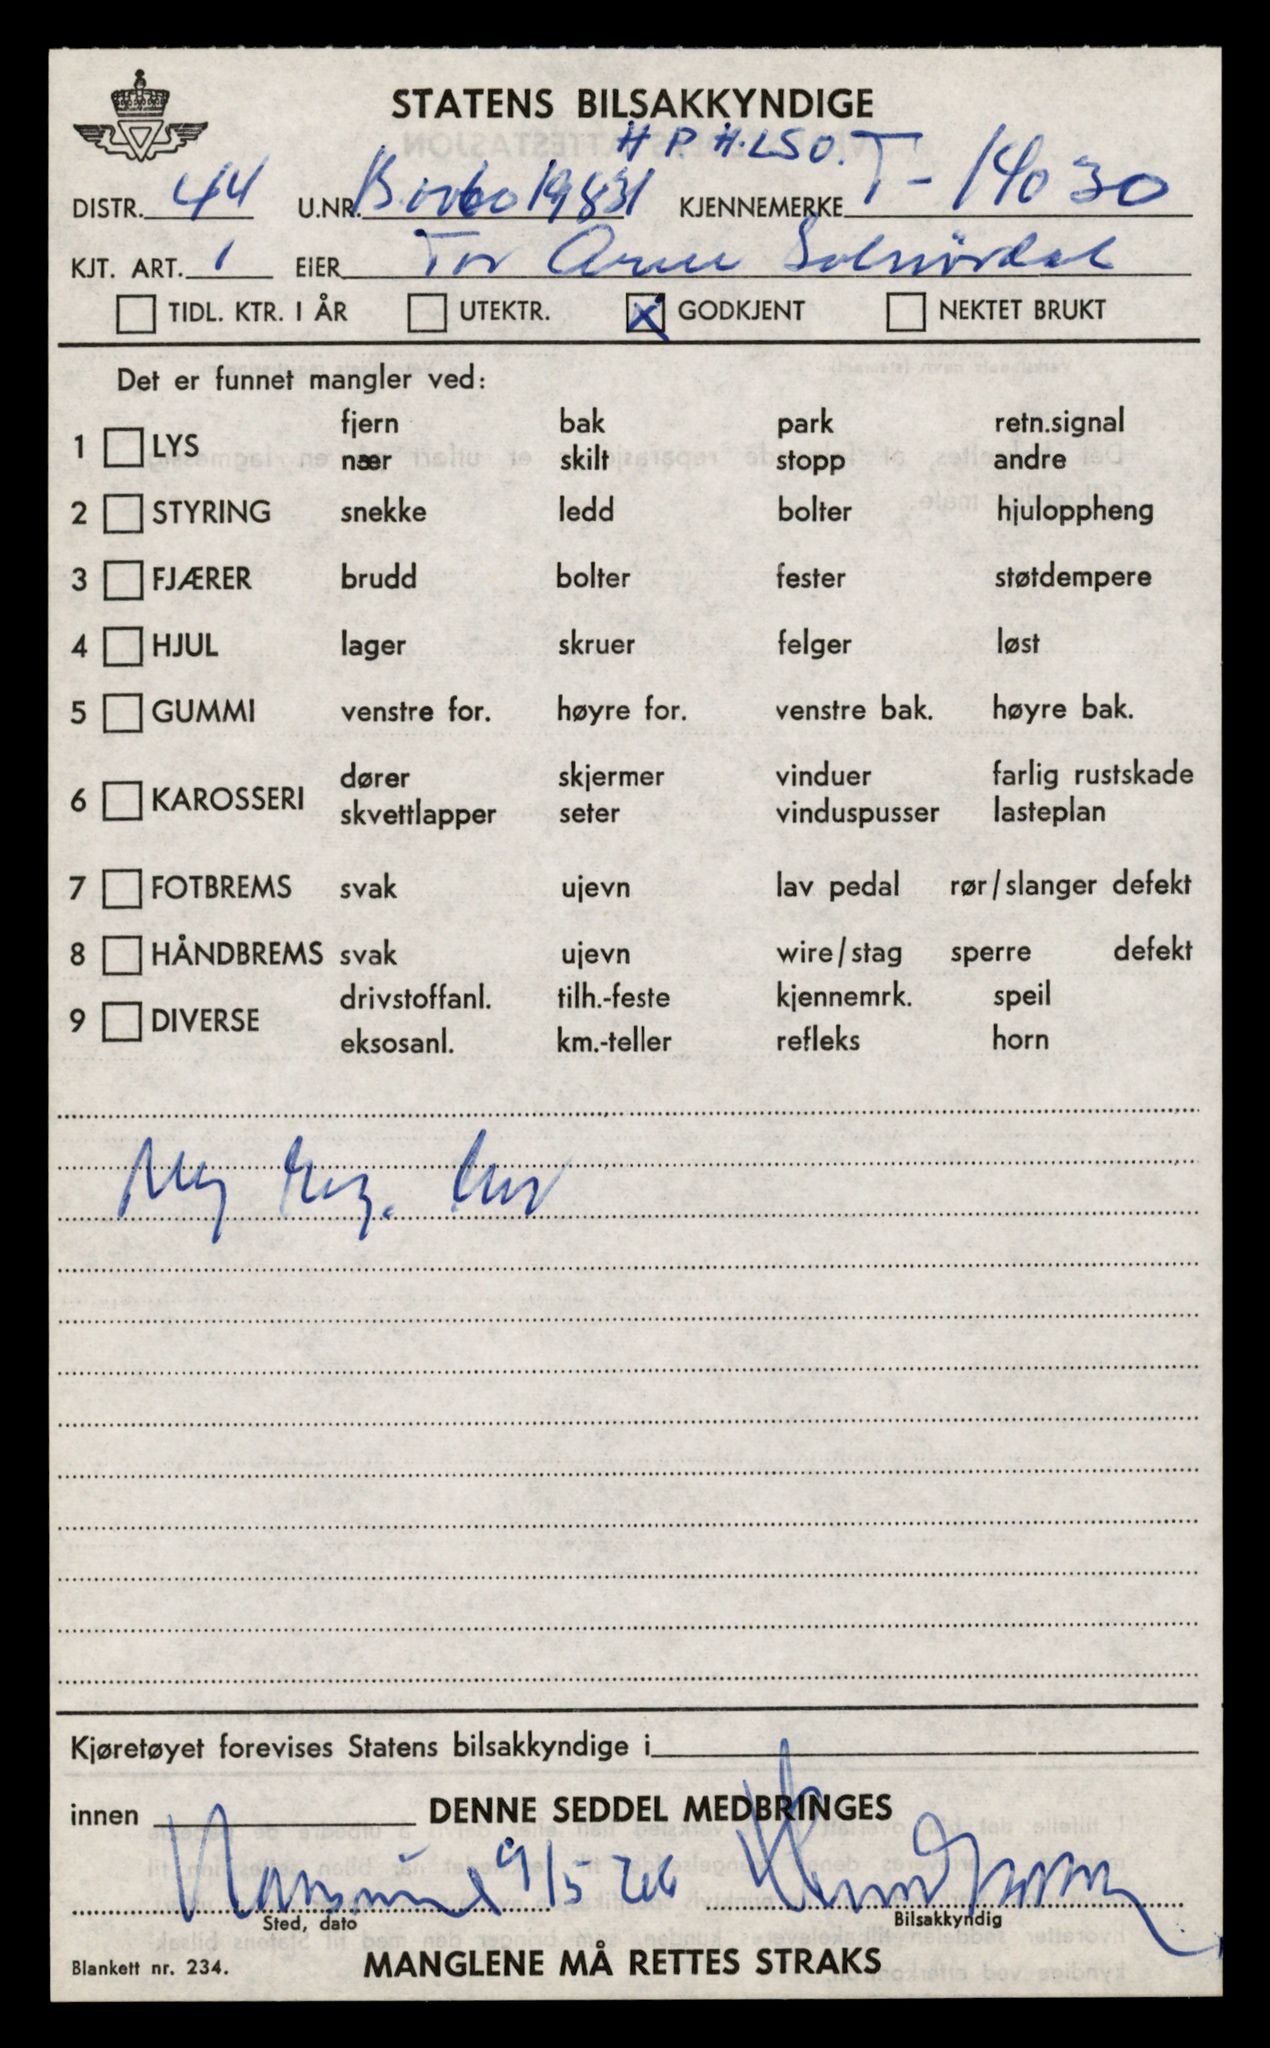 STATENS BILSAKKYNDIGE
DISTR. 44 U.NR. 19831 KJENNEMERKE T- 14030
KJT. ART. 1 EIER Tor Arne Solnørdal
TIDL. KTR. I ÅR UTEKTR. X GODKJENT NEKTET BRUKT
Det er funnet mangler ved:
1 LYS fjern bak park retn.signal
nær skilt stopp andre
2 STYRING snekke ledd bolter hjuloppheng
3 FJÆRER brudd bolter fester støtdempere
4 HJUL lager skruer felger løst
5 GUMMI venstre for. høyre for. venstre bak. høyre bak.
6 KAROSSERI dører skjermer vinduer farlig rustskade
skvettlapper seter vinduspusser lasteplan
7 FOTBREMS svak ujevn lav pedal rør/slanger defekt
8 HÅNDBREMS svak ujevn wire/stag sperre defekt
9 DIVERSE drivstoffanl. tilh.-feste kjennemrk. speil
eksosanl. km.-teller refleks horn
Ny reg.
Kjøretøyet forevises Statens bilsakkyndige i
innen DENNE SEDDEL MEDBRINGES
9/5
Sted, dato Bilsakkyndig
Blankett nr. 234. MANGLENE MÅ RETTES STRAKS